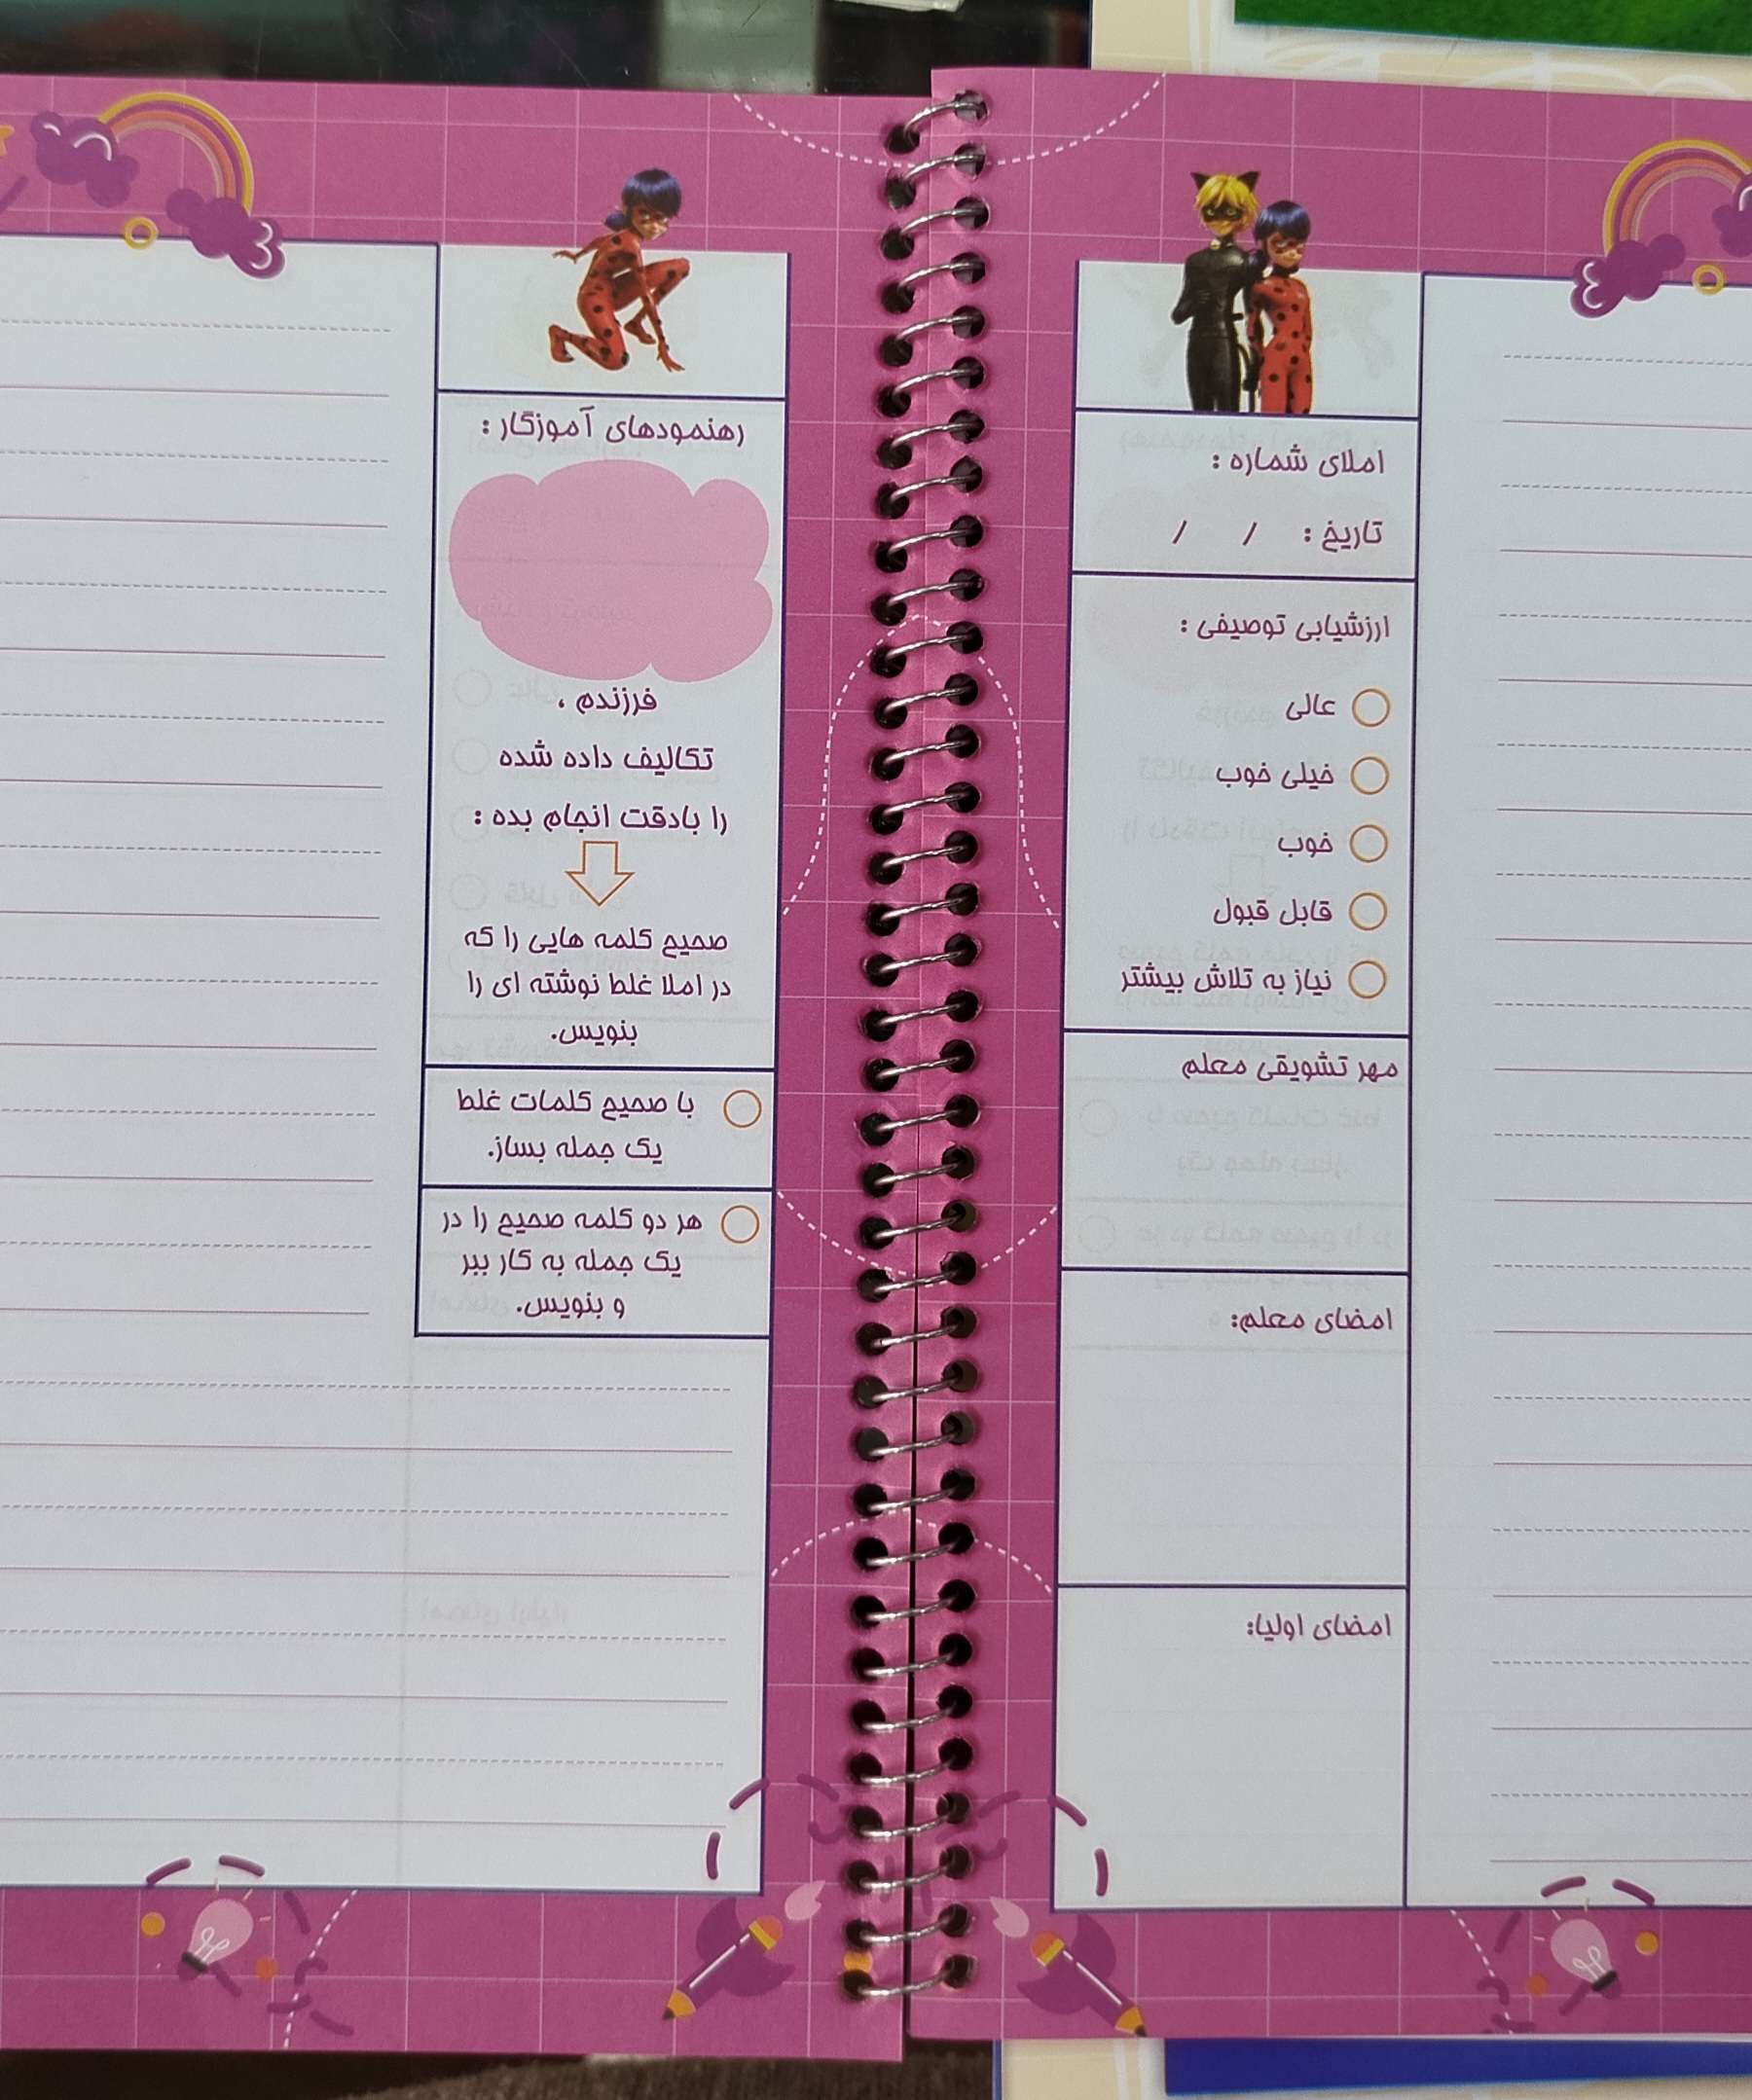 املای شماره :
تاریخ : / /
ارزشیابی توصیفی :
عالی
خیلی خوب
خوب
قابل قبول
نیاز به تلاش بیشتر
مهر تشویقی معلم
امضای معلم:
امضای اولیا:
رهنمودهای آموزگار :
فرزندم ،
تکالیف داده شده
را بادقت انجام بده :
صحیح کلمه هایی را که
در املا غلط نوشته ای را
بنویس.
با صحیح کلمات غلط
یک جمله بساز.
هر دو کلمه صحیح را در
یک جمله به کار ببر
و بنویس.